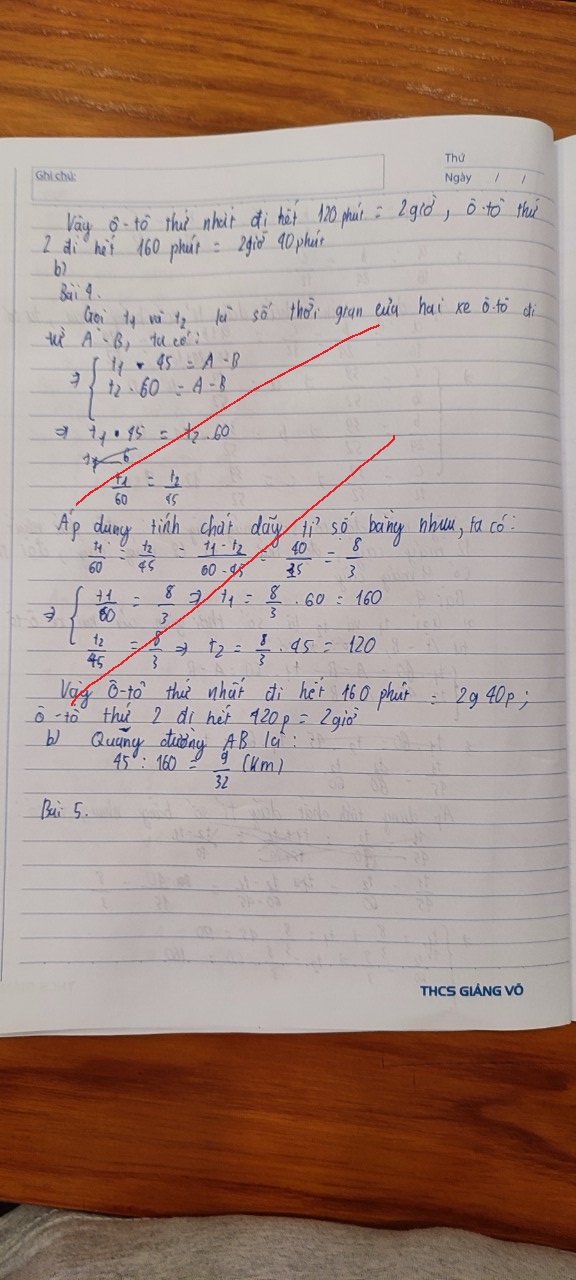 Ghi chú:
Thứ
Ngày / /
Vậy ô-tô thứ nhất đi hết 120 phút = 2 giờ, ô-tô thứ
2 đi hết 160 phút = 2 giờ 40 phút
b)
Bài 4.
Gọi t1 và t2 là số thời gian của hai xe ô-tô đi
từ A-B, ta có:
⇒ { t1 . 45 = A-B
t2 . 60 = A-B
⇒ t1 . 45 = t2 . 60
t1/60 = t2/45
Áp dụng tính chất dãy tỉ số bằng nhau, ta có:
t1/60 = t2/45 = t1-t2/60-45 = 40/15 = 8/3
⇒ { t1/60 = 8/3 ⇒ t1 = 8/3 . 60 = 160
t2/45 = 8/3 ⇒ t2 = 8/3 . 45 = 120
Vậy Ô-tô thứ nhất đi hết 160 phút = 2g 40p;
ô-tô thứ 2 đi hết 120p = 2 giờ
b) Quãng đường AB là:
45 : 160 = 9/32 (Km)
Bài 5.
THCS GIẢNG VÕ